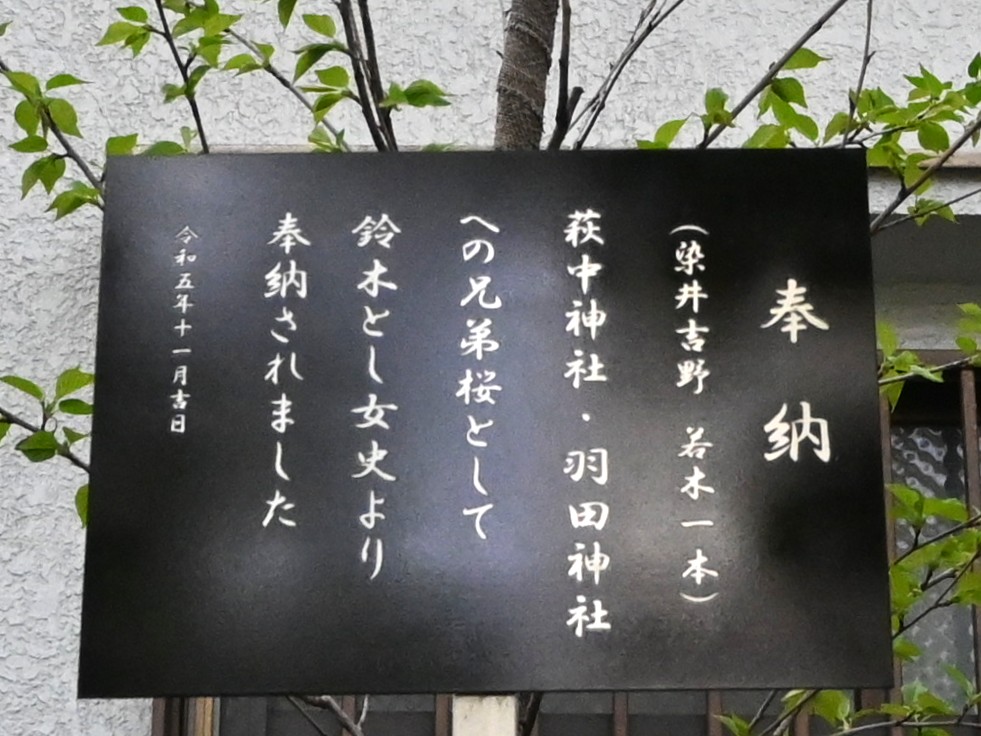 奉納
(染井吉野 若木一本)
萩中神社・羽田神社
への兄弟桜として
鈴木とし女史より
奉納されました
令和五年十一月吉日